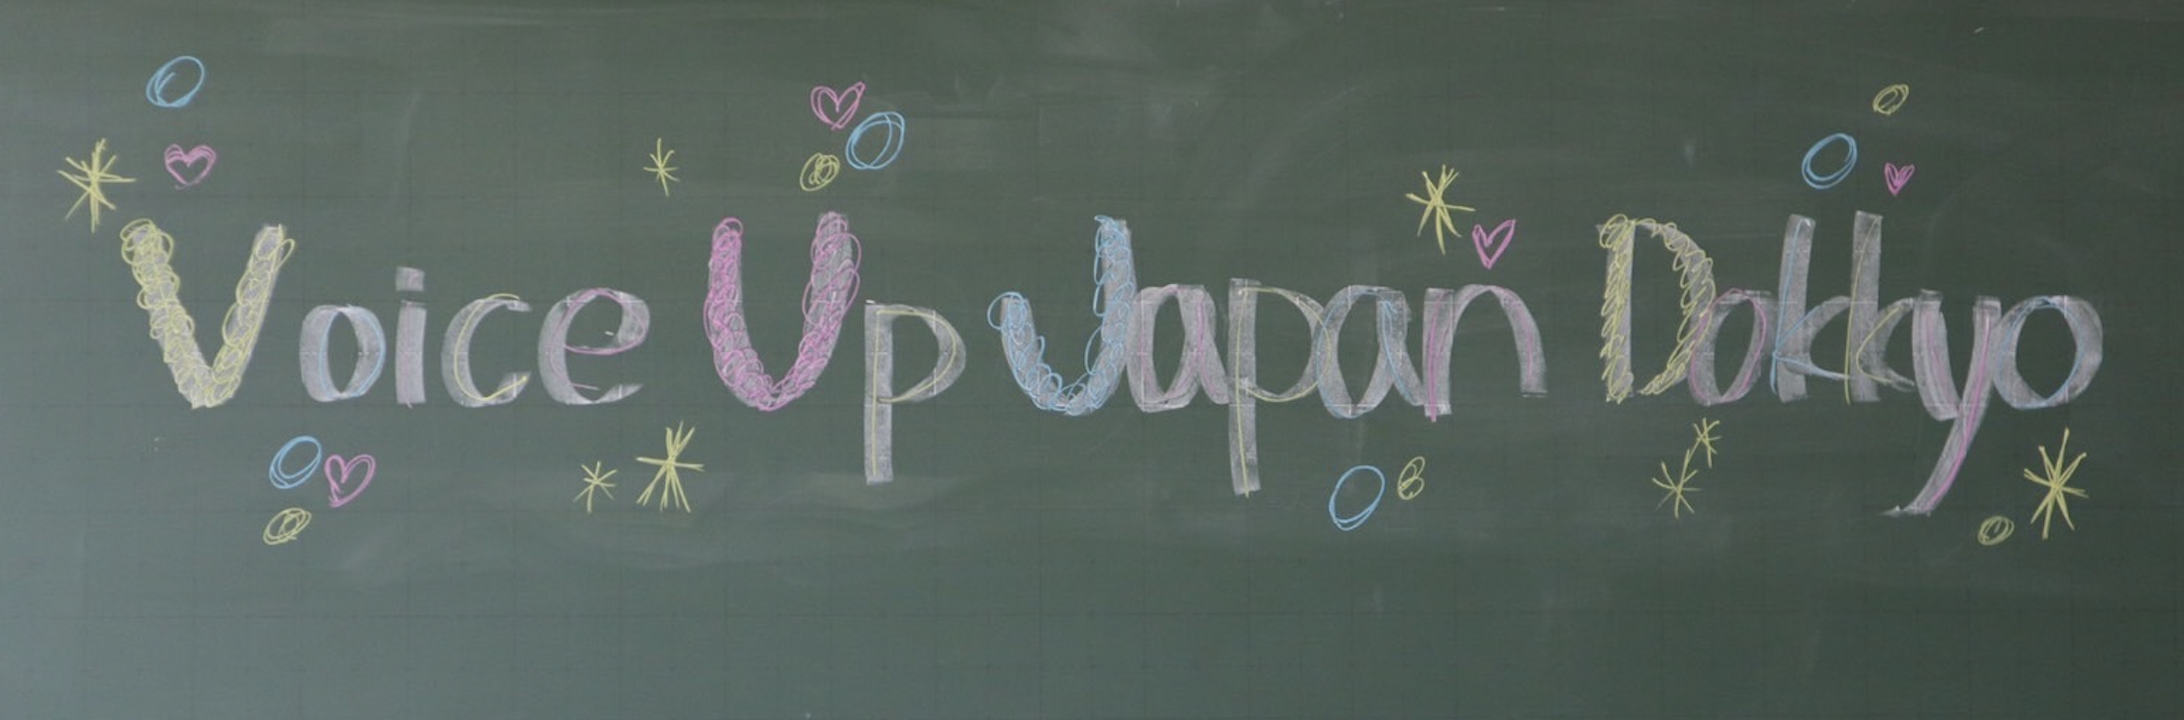 Voice Up Japan Dokkyo